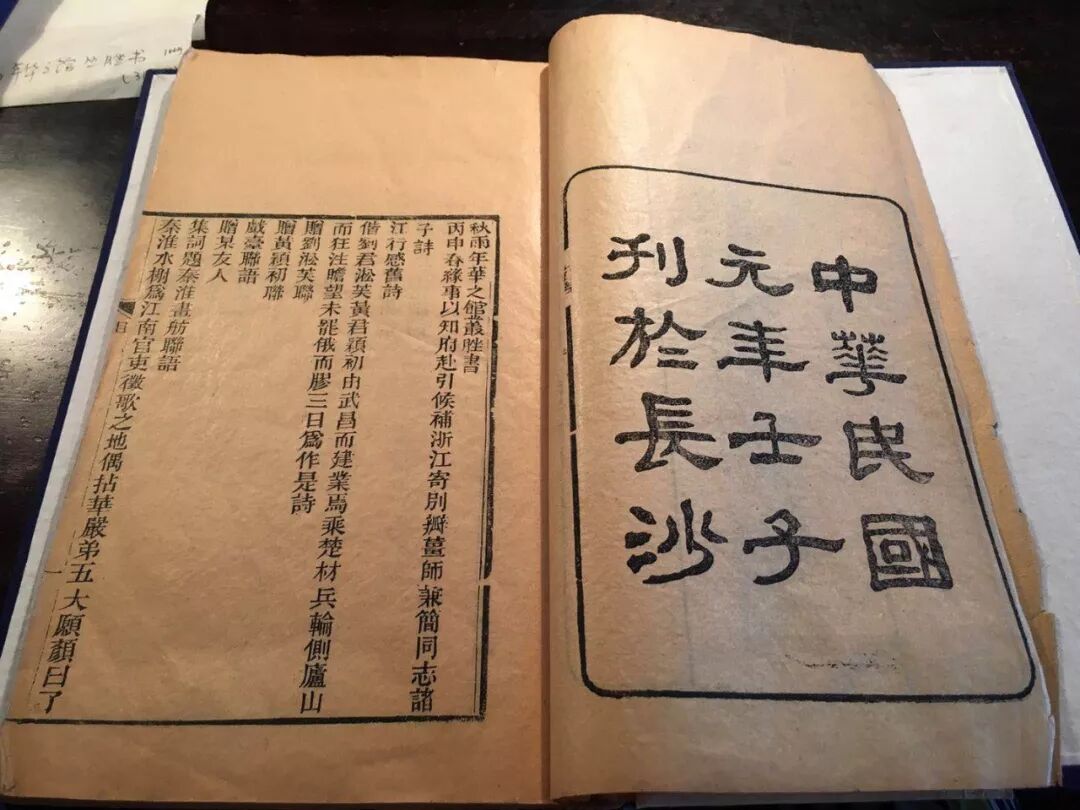 中華民國
元年壬子
刊於長沙
秋雨年華之館叢脞書
丙申春緣事以知府赴引候補浙江寄別瓣薑師兼簡同志諸
子詩
江行感舊詩
借劉君淞芙黃君穎初由武昌而建業焉乘楚材兵輪側廬山
而狂注瞻望未罷俄而膠三日爲作是詩
贈劉淞芙聯
贈黃穎初聯
戲臺聯語
贈某友人
集詞題秦淮畫舫聯語
秦淮水榭爲江南官吏徵歌之地偶拈華嚴弟五大願顏曰了
目
一
年华之馆丛脞书